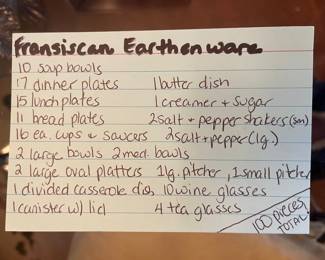 Fransiscan Earthenware
10 soup bowls
17 dinner plates 1 butter dish
15 lunch plates 1 creamer + sugar
11 bread plates 2 salt + pepper shakers (sm)
16 ea. cups & saucers 2 salt + pepper (lg.)
2 large bowls 2 med. bowls
2 large oval platters 1 lg. pitcher, 1 small pitcher
1 divided casserole dish, 10 wine glasses
1 canister w/ lid 4 tea glasses
100 pieces
TOTAL